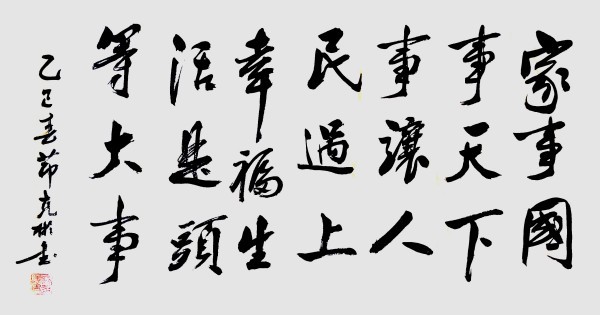 家事國
事天下
事讓人
民過上
幸福生
活是頭
等大事
乙巳春節克彬書